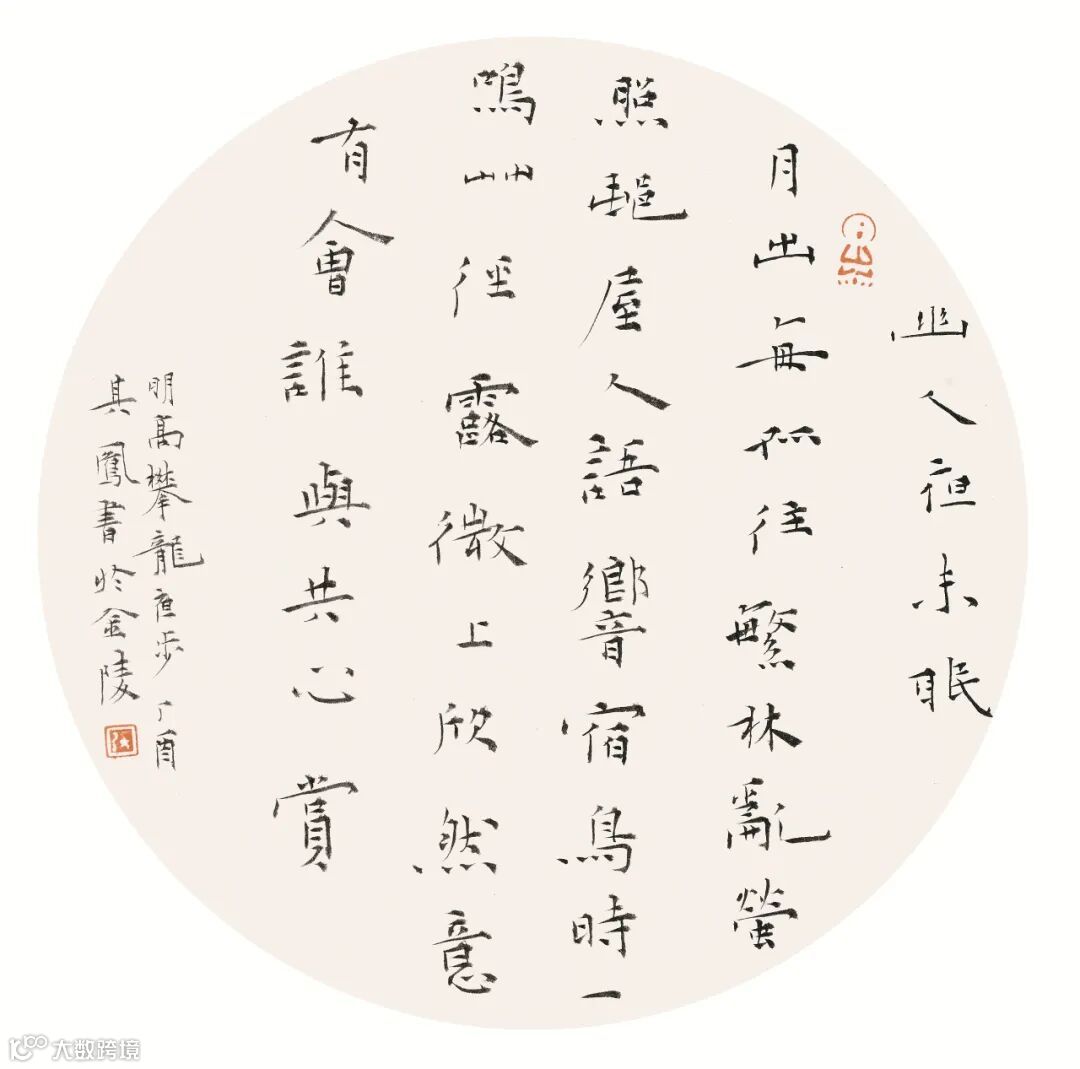 幽人夜未眠
月出每孤往繁林亂螢
照邨屋人語響宿鳥時一
鳴艸徑露微上欣然意
有會誰與共心賞
明高攀龍夜步 丁酉
其鳳書於金陵
大数跨境